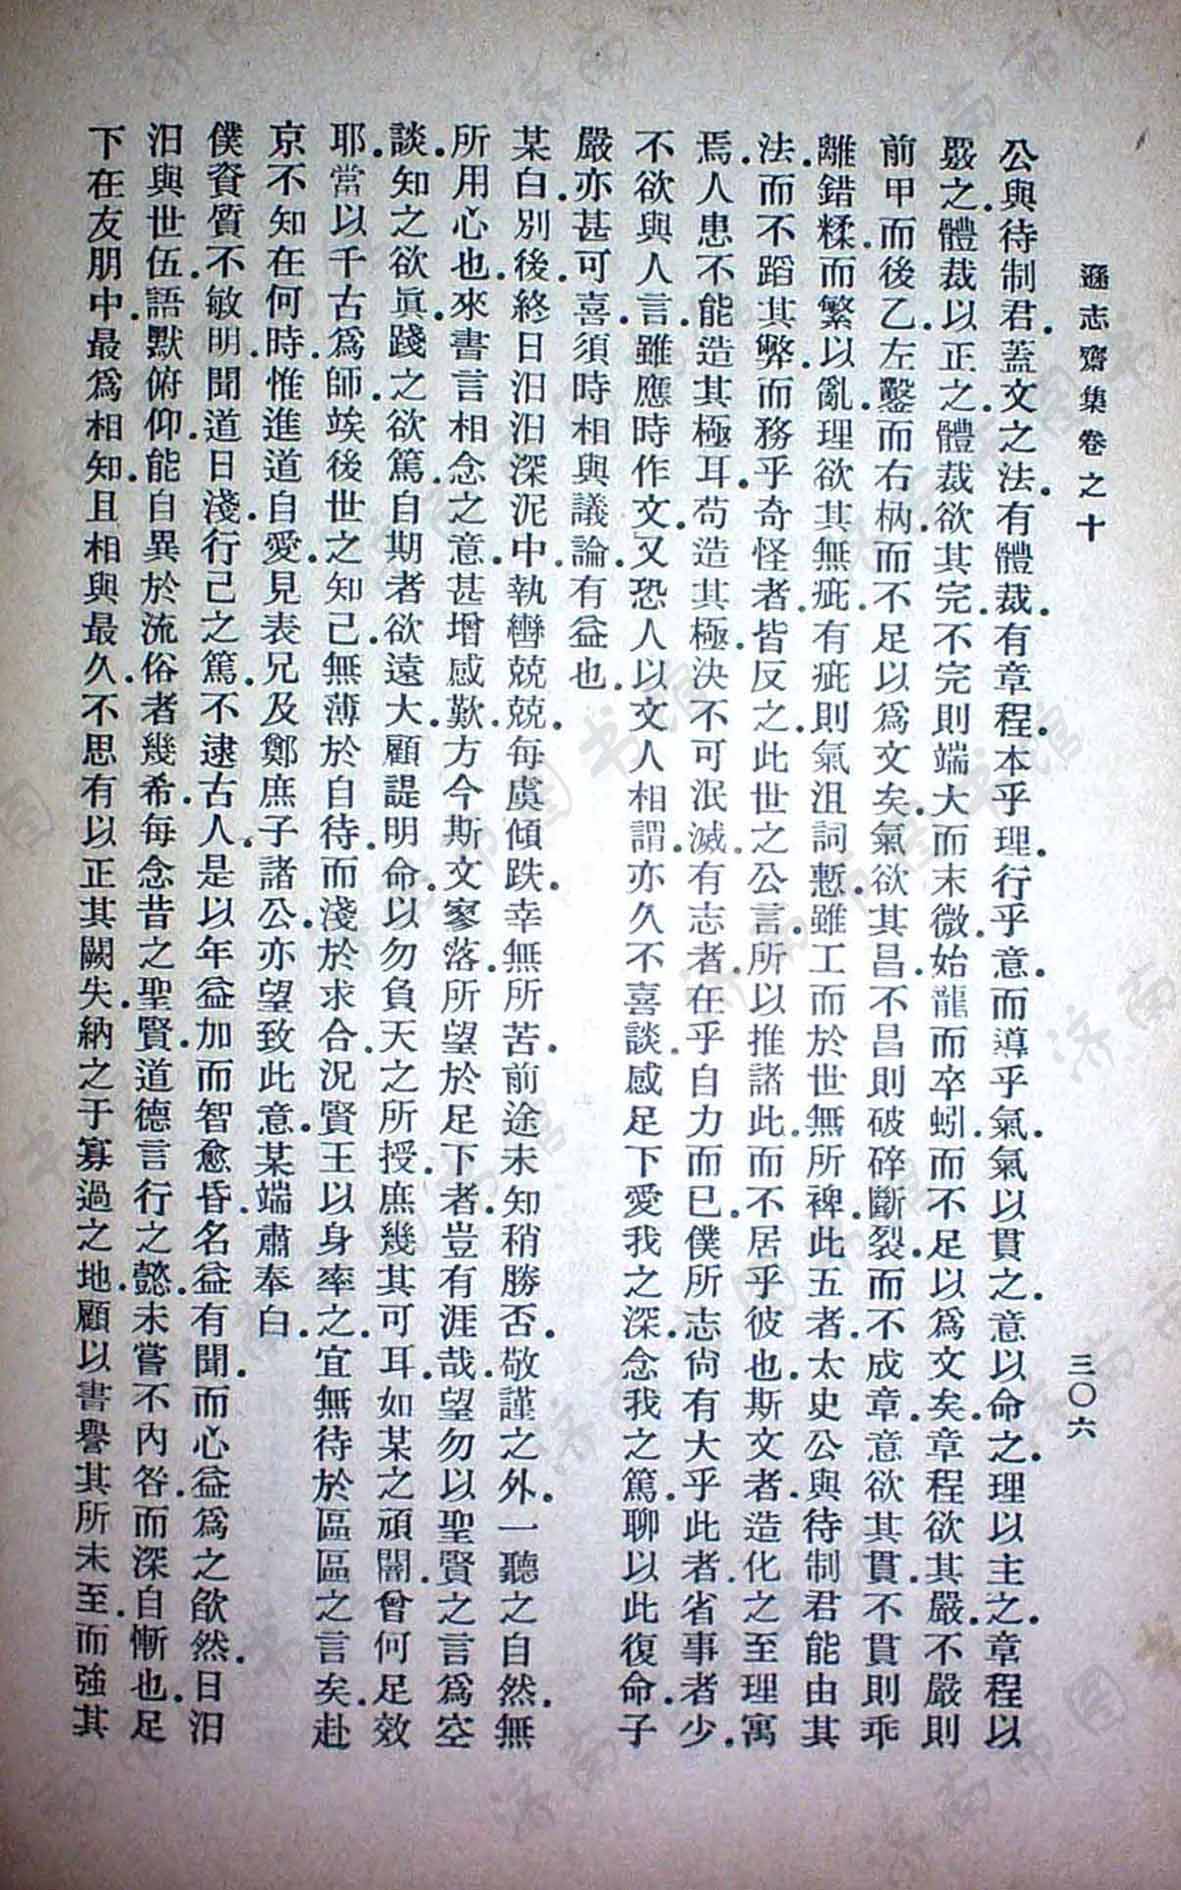 遜志齋集卷之十
三〇六
公與待制君.蓋文之法.有體裁.有章程.本乎理.行乎意.而導乎氣.氣以貫之.意以命之.理以主之.章程以
覈之.體裁以正之.體裁欲其完.不完則端大而末微.始龍而卒蚓.而不足以爲文矣.章程欲其嚴.不嚴則
前甲而後乙.左鑿而右枘.而不足以爲文矣.氣欲其昌.不昌則破碎斷裂.而不成章.意欲其貫.不貫則乖
離錯糅.而繁以亂.理欲其無疵.有疵則氣沮詞慙.雖工而於世無所裨.此五者.太史公與待制君能由其
法.而不蹈其弊.而務乎奇怪者.皆反之.此世之公言.所以推諸此.而不居乎彼也.斯文者.造化之至理寓
焉.人患不能造其極耳.苟造其極.決不可泯滅.有志者.在乎自力而已.僕所志尙有大乎此者.省事者少.
不欲與人言.雖應時作文.又恐人以文人相謂.亦久不喜談.感足下愛我之深.念我之篤.聊以此復命.子
嚴亦甚可喜.須時相與議論.有益也.
某白.別後.終日汩汩深泥中.執轡兢兢.每虞傾跌.幸無所苦.前途未知稍勝否.敬謹之外.一聽之自然.無
所用心也.來書言相念之意.甚增感歎.方今斯文寥落.所望於足下者.豈有涯哉.望勿以聖賢之言爲空
談.知之欲眞.踐之欲篤.自期者欲遠大.顧諟明命.以勿負天之所授.庶幾其可耳.如某之頑闇.曾何足效
耶.當以千古爲師.竢後世之知己.無薄於自待.而淺於求合.況賢王以身率之.宜無待於區區之言矣.赴
京不知在何時.惟進道自愛.見表兄及鄭庶子諸公.亦望致此意.某端肅奉白.
僕資質不敏明.聞道日淺.行己之篤.不逮古人.是以年益加而智愈昏.名益有聞.而心益爲之欿然.日汨
汨與世伍.語默俯仰.能自異於流俗者幾希.每念昔之聖賢.道德言行之懿.未嘗不內咎.而深自慚也.足
下在友朋中.最爲相知.且相與最久.不思有以正其闕失.納之于寡過之地.顧以書譽其所未至.而強其